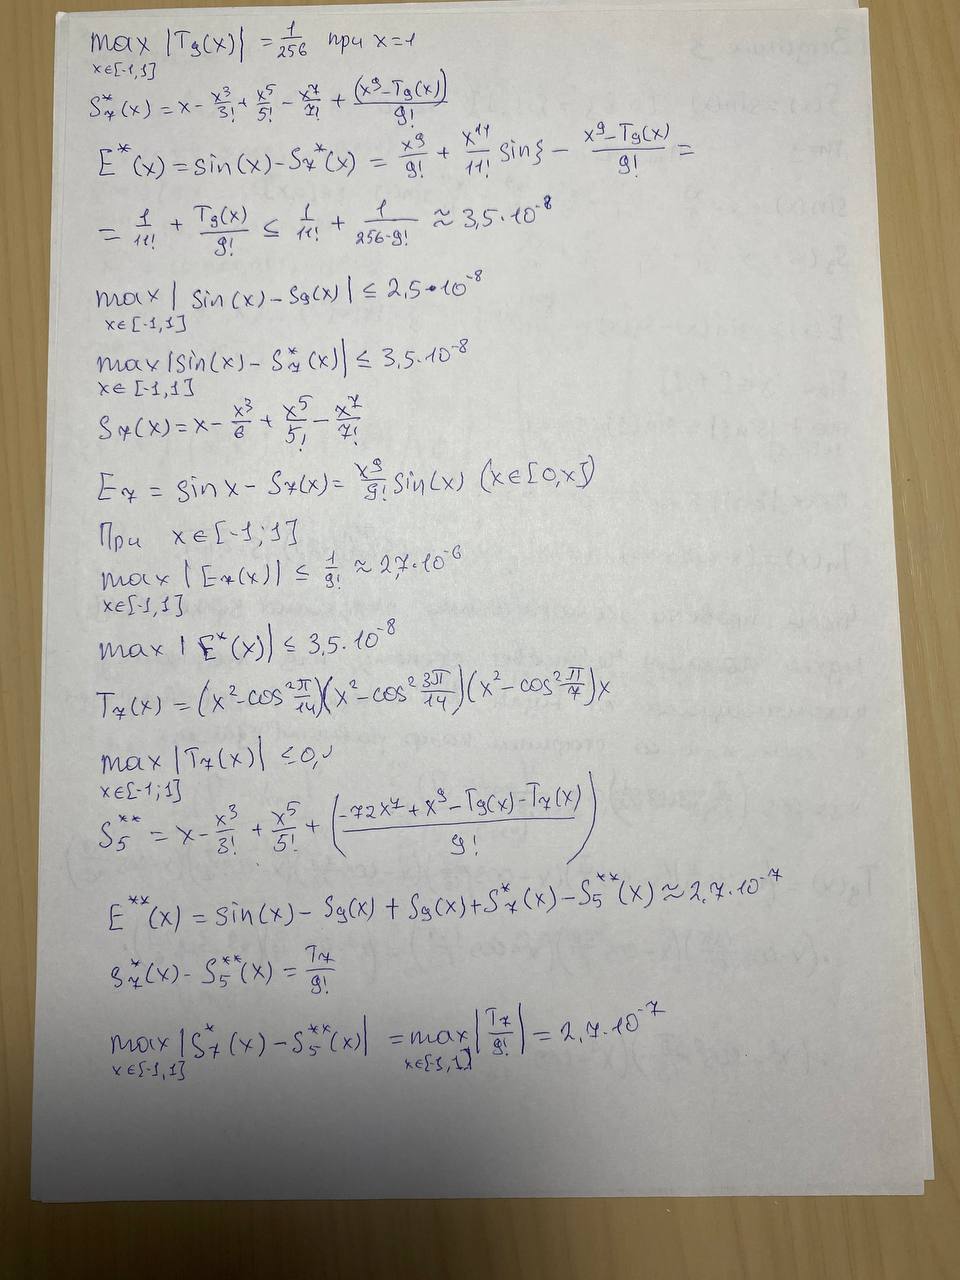 max |T₉(x)| = 1/256 при x=1
x∈[-1,1]
S₇*(x) = x - x³/3! + x⁵/5! - x⁷/7! + (x⁹-T₉(x))/9!
E*(x) = sin(x) - S₇*(x) = x⁹/9! + x¹¹/11! sin ξ - (x⁹-T₉(x))/9! =
= 1/11! + T₉(x)/9! ≤ 1/11! + 1/(256·9!) ≈ 3,5·10⁻⁸
max | sin(x) - S₉(x) | ≤ 2,5·10⁻⁸
x∈[-1,1]
max |sin(x) - S₇*(x)| ≤ 3,5·10⁻⁸
x∈[-1,1]
S₇(x) = x - x³/6 + x⁵/5! - x⁷/7!
E₇ = sin x - S₇(x) = x⁹/9! sin(x) (x∈[0,x])
При x∈[-1;1]
max |E₇(x)| ≤ 1/9! ≈ 2,7·10⁻⁶
x∈[-1,1]
max | E*(x)| ≤ 3,5·10⁻⁸
T₇(x) = (x² - cos² π/14)(x² - cos² 3π/14)(x² - cos² π/7)x
max |T₇(x)| ≤ 0,
x∈[-1;1]
S₅** = x - x³/3! + x⁵/5! + ((-72x⁷ + x⁹ - T₉(x) - T₇(x))/9!)
E**(x) = sin(x) - S₉(x) + S₉(x) + S₇*(x) - S₅**(x) ≈ 2,7·10⁻⁷
S₇*(x) - S₅**(x) = T₇/9!
max |S₇*(x) - S₅**(x)| = max |T₇/9!| = 2,7·10⁻⁷
x∈[-1,1] x∈[-1,1]